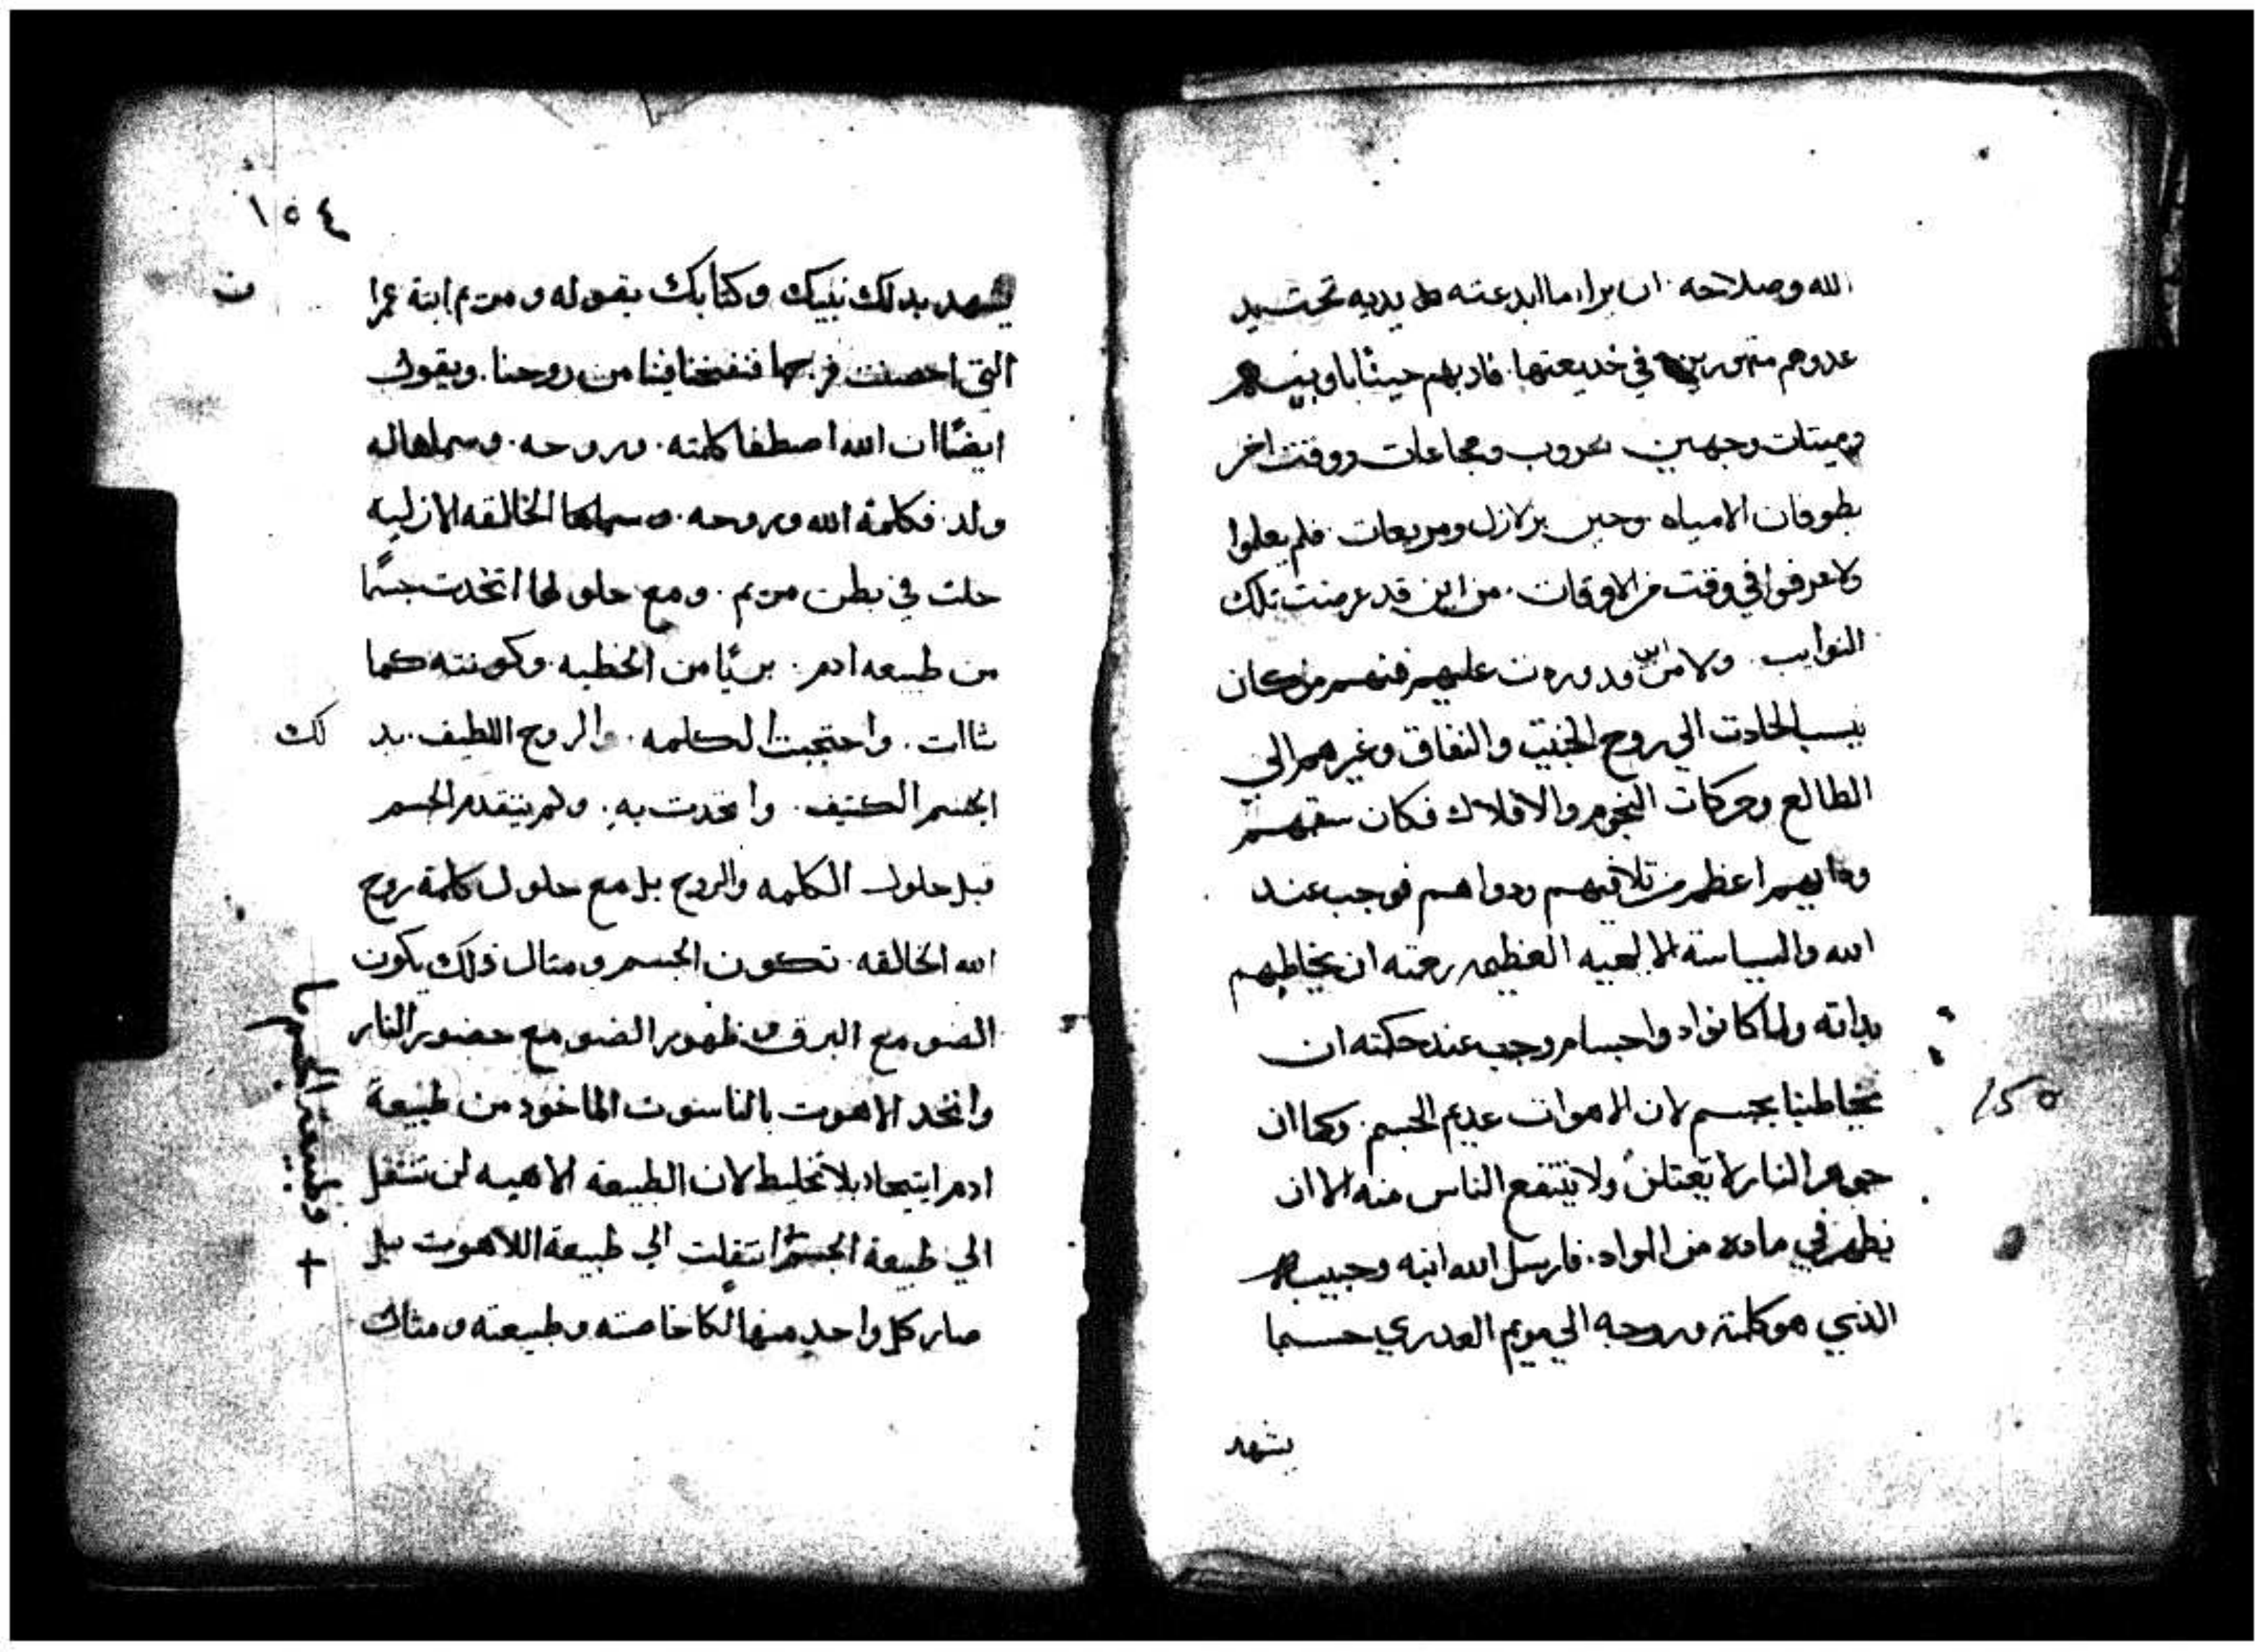 الله وصلاحه ان يرا ما ابدعته يديه تحت يد
عدوهم مقهورين في خديعتها فادبهم حينًا باوبيه
وميتات وحين بحروب ومجاعات ووقت اخر
بطوفان الامياه وحين بزلازل ومريعات فلم يعلموا
ولا عرفوا في وقت من الاوقات من اين قد عرضت تلك
النوايب ولا من اين وردت عليهم فمنهم من كان
ينسب الحادت الي روح الخبيث والنفاق وغيرهم الي
الطالع وحركات النجوم والافلاك فكان سقمهم
ودايهم اعظم من تلافيهم ودواهم فوجب عند
الله والسياسة العظيمه رحمته ان يخاطبهم
بداته ولما كانوا دوا جسام وجب عند حكمته ان
يخاطبنا بجسم لان الاهوات عديم الجسم وكما ان
جوهر النار لا ولا ينتفع الناس منه الا ان
يظهر في مادة من المواد فارسل الله ابنه وحبيبه
الذي هو كلمته وروحه الي مريم العدري حسبما
يشهد
١٥٤
يشهد بدلك نبيك وكتابك بقوله ومريم ابنة عمران
التي احصنت فرجها فنفخنا فيها من روحنا. ويقول
ايضًا ان الله اصطفا كلمته. وروحه. وسماها له
ولد. فكلمة الله وروحه. وسماها الخالقه الازليه
حلت في بطن مريم. ومع حلولها اتخدت جسمًا
من طبيعه ادم. بريًا من الخطيه. وكونته كما
شاات. واحتجبت الكلمه. والروح اللطيف. بدلك
الجسم الكتيف. واتحدت به. ولم يتقدم الجسم
قبل حلول الكلمه والروح بل مع حلول كلمة روح
الله الخالقه. تكون الجسم ومتال ذلك يكون
الضو مع البرق وظهور الضو مع حضور النار
واتحد الاهوت بالناسوت الماخود من طبيعة
ادم ايتحاد بلا تخليط لان الطبيعة الاهيه لن تنتقل
الي طبيعة الجسم انتقلت الي طبيعة اللاهوت بل
صار كل واحد منهما خاصته وطبيعته ومثال
+ وطبيعة الجسم ما